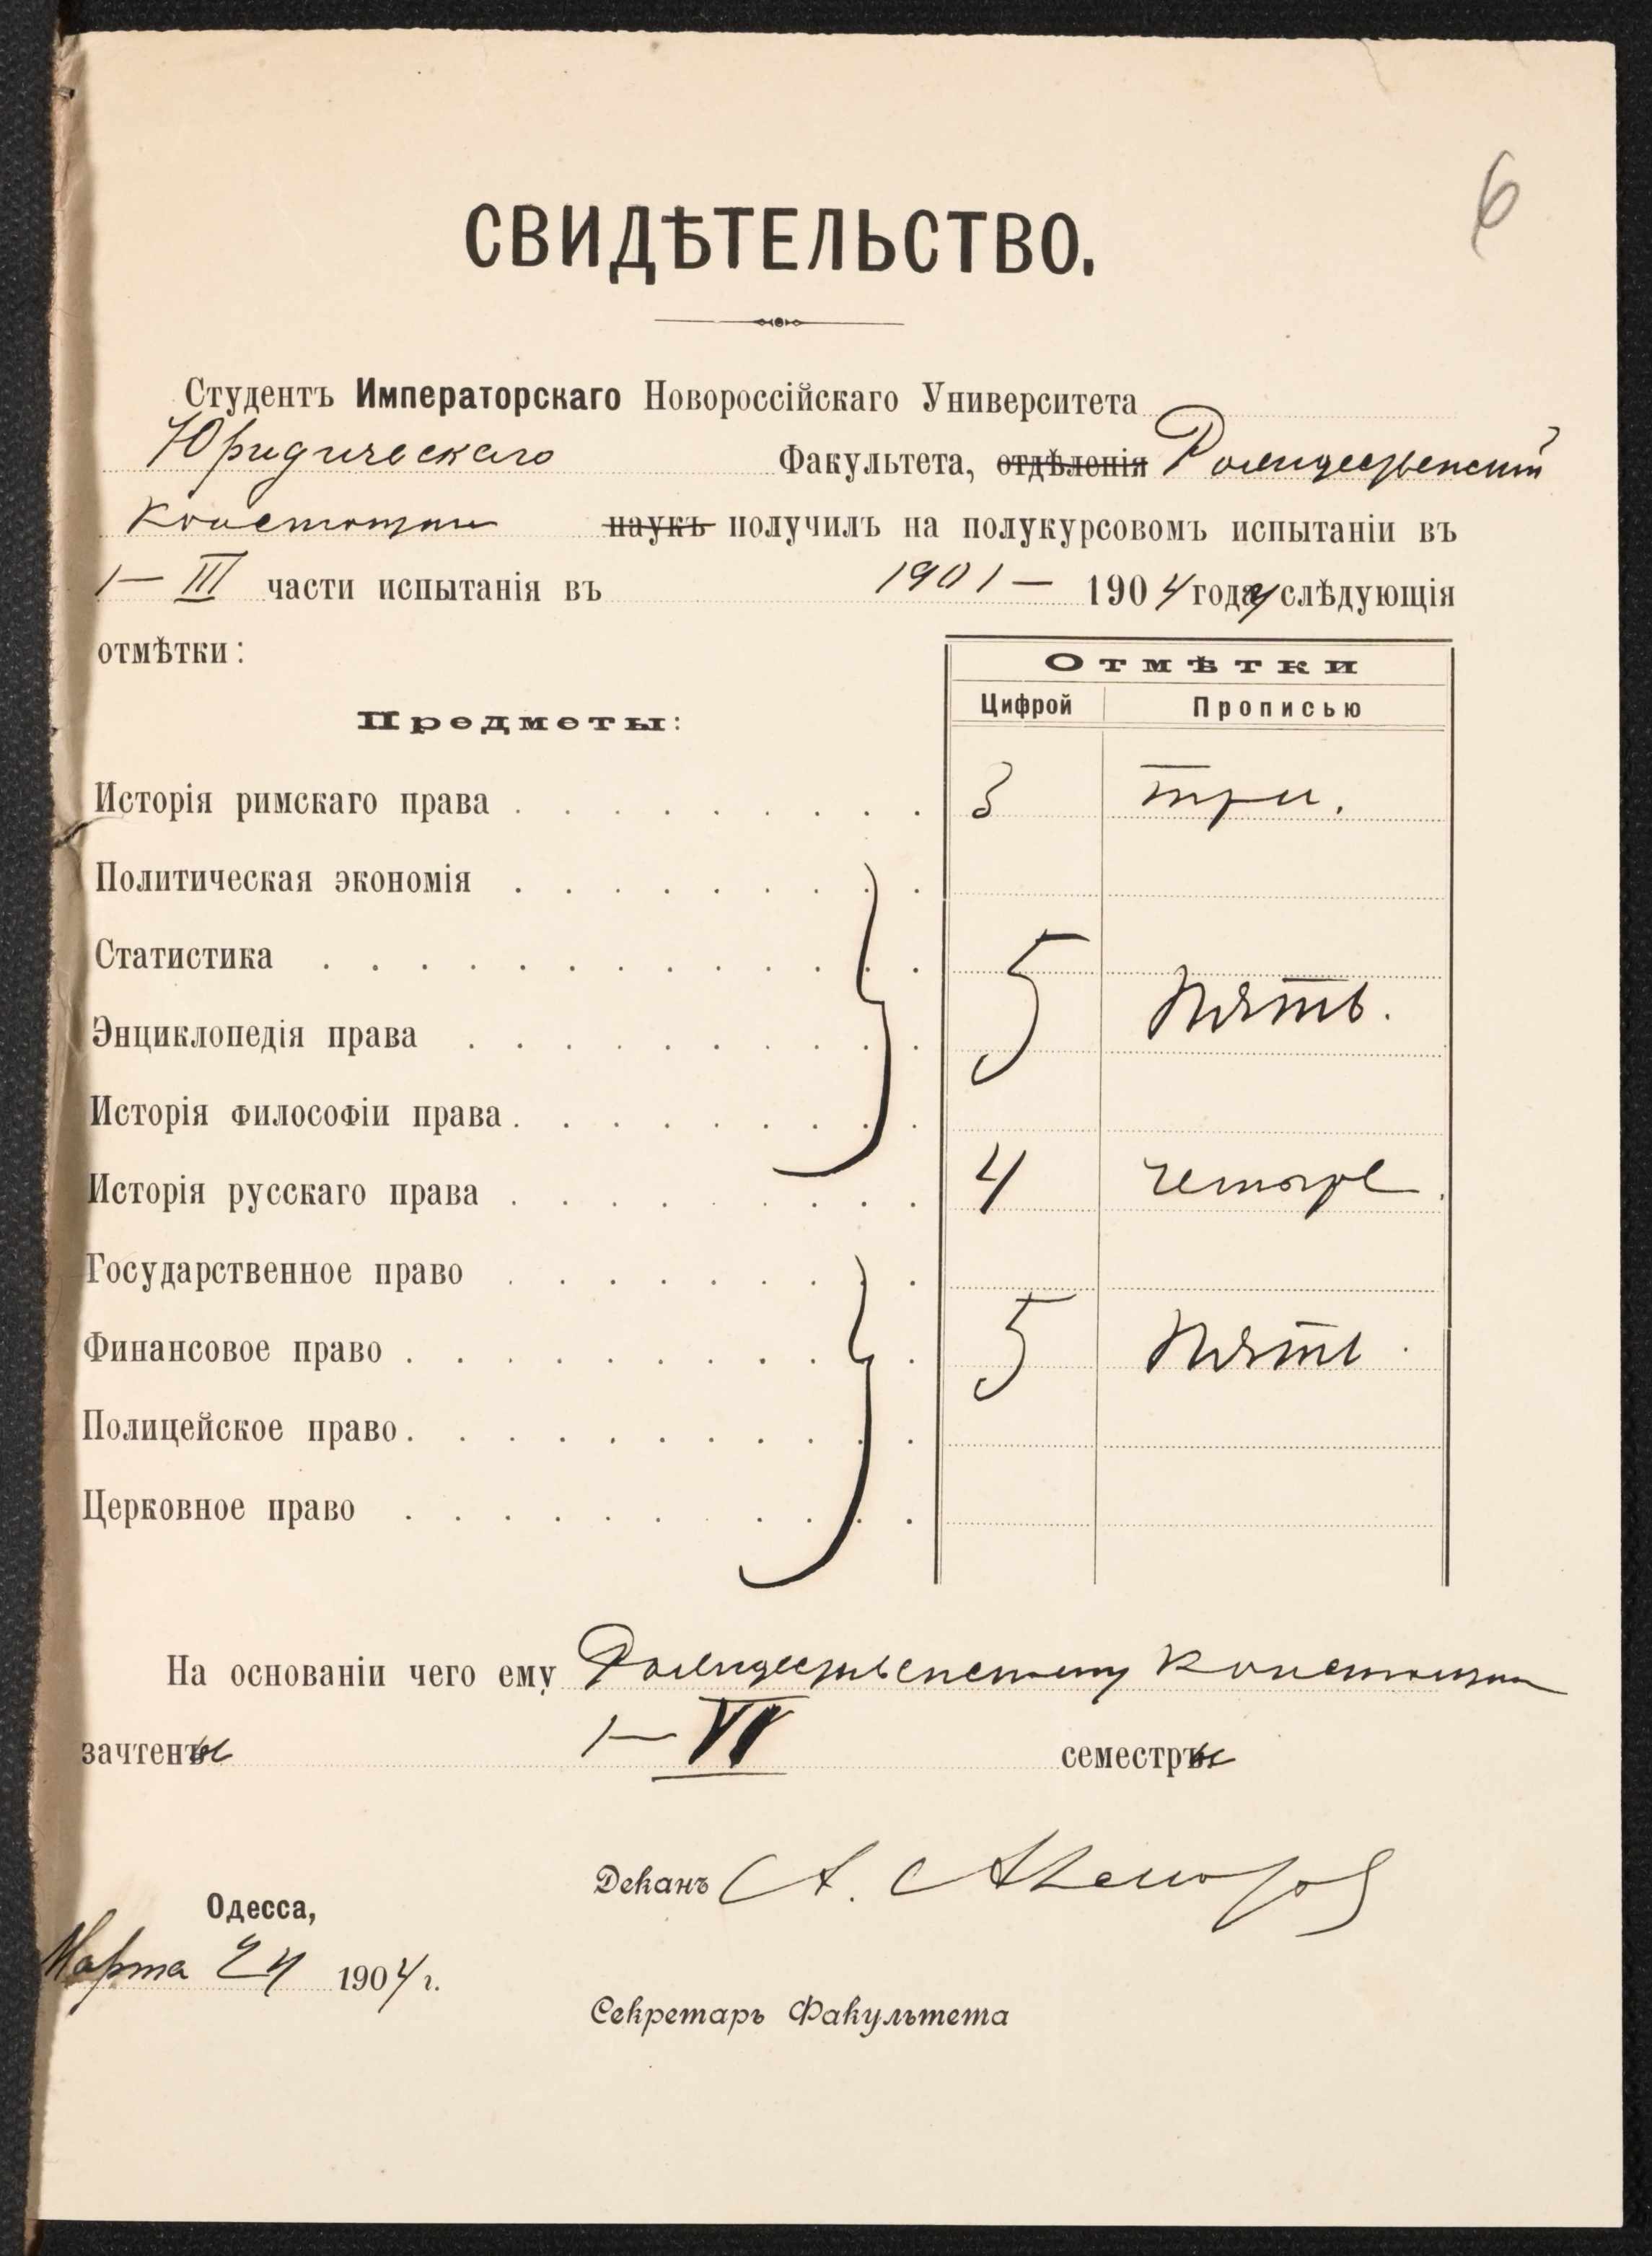 6
СВИДѢТЕЛЬСТВО.
Студентъ Императорскаго Новороссійскаго Университета
Юридическаго Факультета, отдѣленія Рождественскій
Константин наукъ получилъ на полукурсовомъ испытаніи въ
1— III части испытанія въ 1901 — 1904 году слѣдующія
отмѣтки:
Отмѣтки
Предметы:
Цифрой Прописью
Исторія римскаго права . . . . . . . . . 3 три.
Политическая экономія . . . . . . . . .
Статистика . . . . . . . . . . . . .
5 пять.
Энциклопедія права . . . . . . . . . .
Исторія философіи права . . . . . . . . .
Исторія русскаго права . . . . . . . . . 4 четыре.
Государственное право . . . . . . . . .
Финансовое право . . . . . . . . . . . 5 пять.
Полицейское право . . . . . . . . . . .
Церковное право . . . . . . . . . . .
На основаніи чего ему Рождественскому Константин
зачтены 1— VI семестры
Деканъ А.
Одесса,
Марта 24 1904 г.
Секретарь Факультета